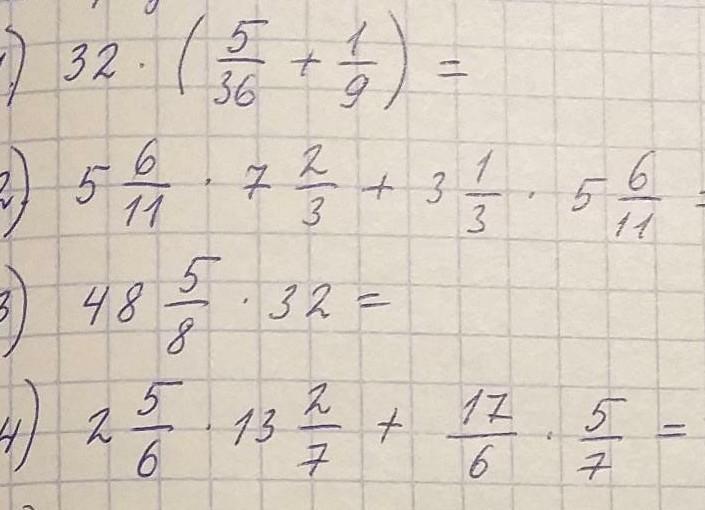 1) 32 · (5/36 + 1/9) =
2) 5 6/11 · 7 2/3 + 3 1/3 · 5 6/11 =
3) 48 5/8 · 32 =
4) 2 5/6 · 13 2/7 + 17/6 · 5/7 =